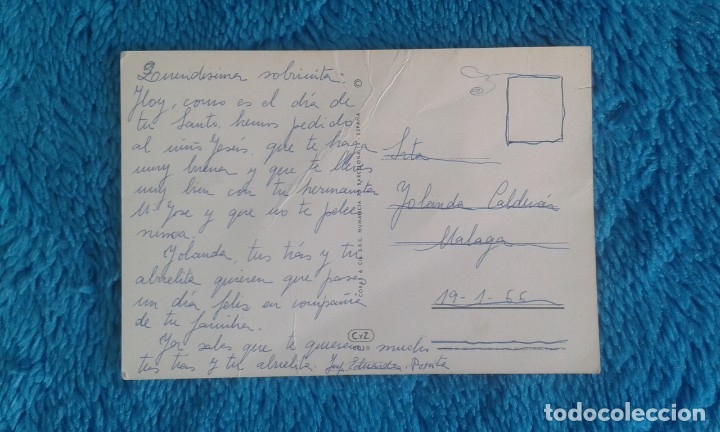 Queridisima sobrinita:
Hoy, como es el día de
tu Santo, hemos pedido
al niño Jesus, que te haga
muy buena y que te lleves
muy bien con tu hermanita
Mª Jose y que no te pelees
nunca.
Yolanda, tus tias y tu
abuelita quieren que pases
un día feliz en compañia
de tu familia.
Ya sabes que te quieren mucho
tus tias y tu abuelita.
©
ESPAÑA
C y Z
Srta
Yolanda Calderón
Malaga
19-1-66
todocoleccion
todocoleccion.net